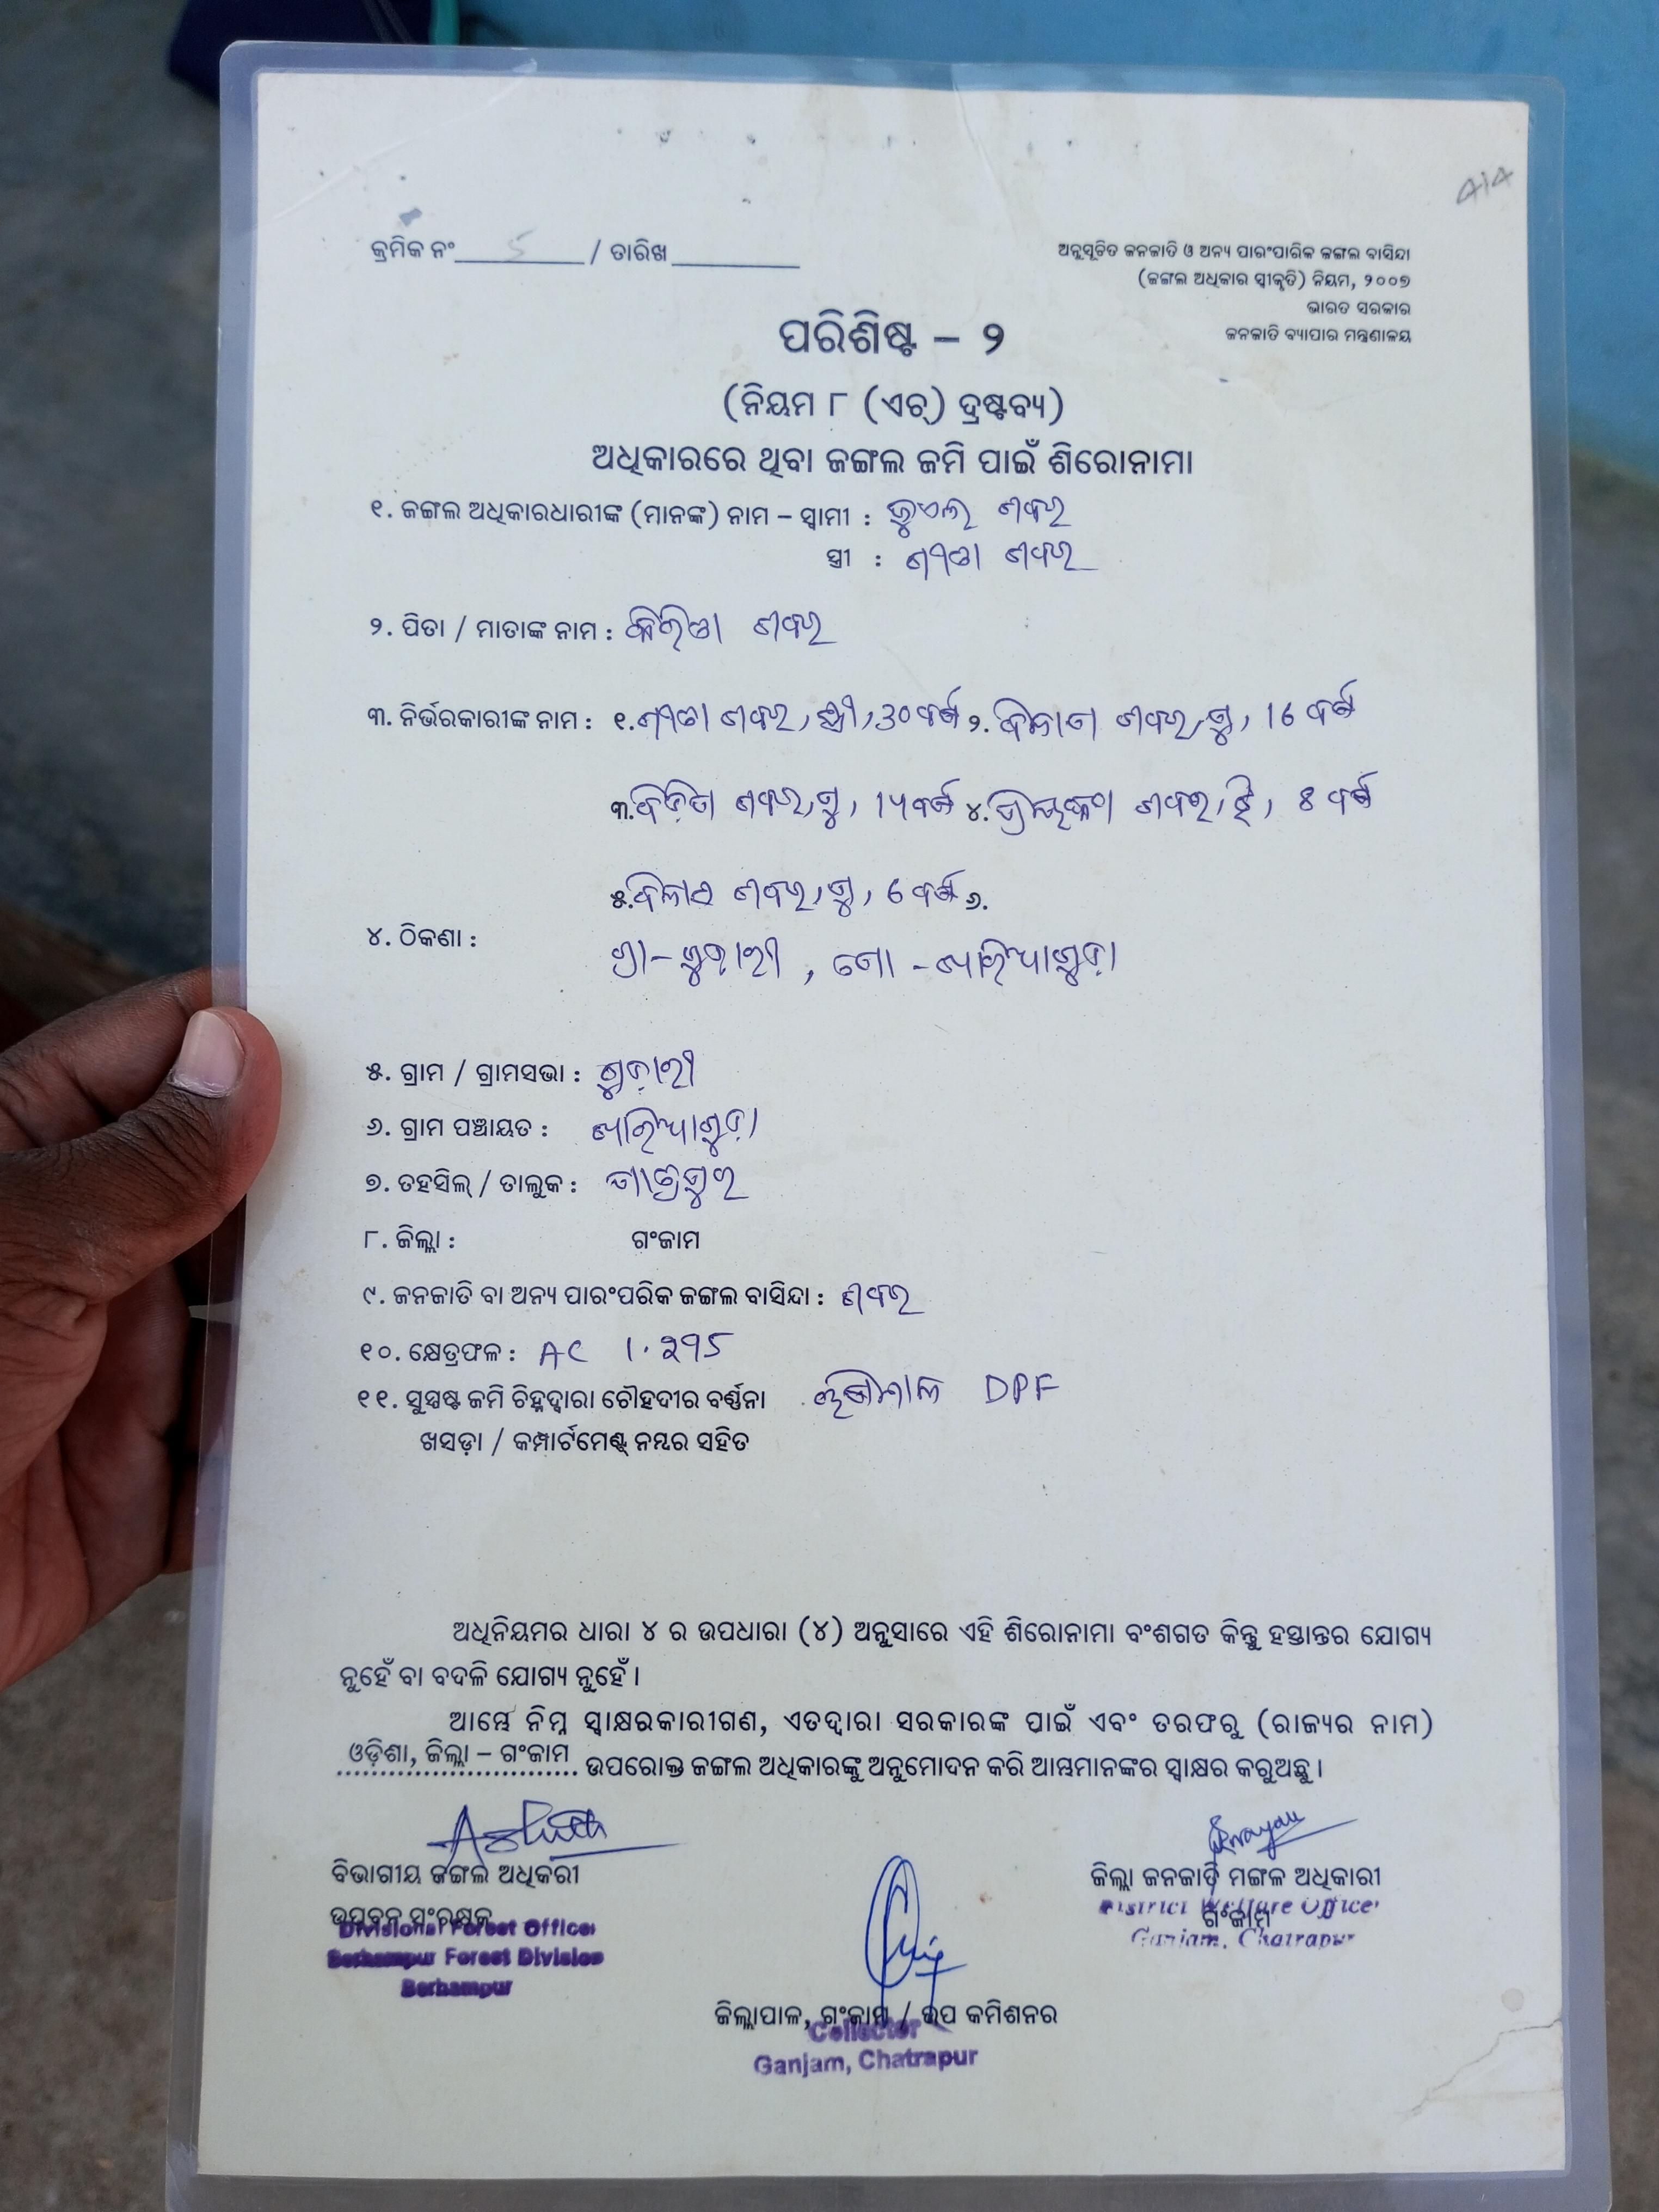 414
କ୍ରମିକ ନଂ 5 / ତାରିଖ
ଅନୁସୂଚିତ ଜନଜାତି ଓ ଅନ୍ୟ ପାରଂପାରିକ ଜଙ୍ଗଲ ବାସିନ୍ଦା
(ଜଙ୍ଗଲ ଅଧିକାର ସ୍ୱୀକୃତି) ନିୟମ, ୨୦୦୭
ଭାରତ ସରକାର
ଜନଜାତି ବ୍ୟାପାର ମନ୍ତ୍ରଣାଳୟ
ପରିଶିଷ୍ଟ – ୨
(ନିୟମ ୮ (ଏଚ୍) ଦ୍ରଷ୍ଟବ୍ୟ)
ଅଧିକାରରେ ଥିବା ଜଙ୍ଗଲ ଜମି ପାଇଁ ଶିରୋନାମା
୧. ଜଙ୍ଗଲ ଅଧିକାରଧାରୀଙ୍କ (ମାନଙ୍କ) ନାମ – ସ୍ୱାମୀ : ଶବର
ସ୍ତ୍ରୀ : ଶବର
୨. ପିତା / ମାତାଙ୍କ ନାମ : ଶବର
୩. ନିର୍ଭରକାରୀଙ୍କ ନାମ : ୧. ଶବର, ସ୍ତ୍ରୀ, 30 ବର୍ଷ ୨. ଶବର, ପୁ, 16 ବର୍ଷ
୩. ଶବର, ପୁ, ବର୍ଷ ୪. ଶବର, ଝି, 8 ବର୍ଷ
୫. ଶବର, ପୁ, 6 ବର୍ଷ ୬.
୪. ଠିକଣା :
ଗ୍ରା- , ପୋ -
୫. ଗ୍ରାମ / ଗ୍ରାମସଭା :
୬. ଗ୍ରାମ ପଞ୍ଚାୟତ :
୭. ତହସିଲ୍ / ତାଲୁକ : ପାତ୍ରପୁର
୮. ଜିଲ୍ଲା : ଗଂଜାମ
୯. ଜନଜାତି ବା ଅନ୍ୟ ପାରଂପରିକ ଜଙ୍ଗଲ ବାସିନ୍ଦା : ଶବର
୧୦. କ୍ଷେତ୍ରଫଳ : AC
୧୧. ସୁସ୍ପଷ୍ଟ ଜମି ଚିହ୍ନଦ୍ୱାରା ଚୌହଦୀର ବର୍ଣ୍ଣନା DPF
ଖସଡ଼ା / କମ୍ପାର୍ଟମେଣ୍ଟ ନମ୍ବର ସହିତ
ଅଧିନିୟମର ଧାରା ୪ ର ଉପଧାରା (୪) ଅନୁସାରେ ଏହି ଶିରୋନାମା ବଂଶଗତ କିନ୍ତୁ ହସ୍ତାନ୍ତର ଯୋଗ୍ୟ
ନୁହେଁ ବା ବଦଳି ଯୋଗ୍ୟ ନୁହେଁ ।
ଆମ୍ଭେ ନିମ୍ନ ସ୍ୱାକ୍ଷରକାରୀଗଣ, ଏତଦ୍ୱାରା ସରକାରଙ୍କ ପାଇଁ ଏବଂ ତରଫରୁ (ରାଜ୍ୟର ନାମ)
ଓଡ଼ିଶା, ଜିଲ୍ଲା – ଗଂଜାମ ଉପରୋକ୍ତ ଜଙ୍ଗଲ ଅଧିକାରଙ୍କୁ ଅନୁମୋଦନ କରି ଆମ୍ଭମାନଙ୍କର ସ୍ୱାକ୍ଷର କରୁଅଛୁ ।
ବିଭାଗୀୟ ଜଙ୍ଗଲ ଅଧିକରୀ
ଉପବନ ସଂରକ୍ଷକ
Divisional Forest Officer
Berhampur Forest Division
Berhampur
ଜିଲ୍ଲା ଜନଜାତି ମଙ୍ଗଳ ଅଧିକାରୀ
ଗଂଜାମ
District Welfare Officer
Ganjam, Chatrapur
ଜିଲ୍ଲାପାଳ, ଗଂଜାମ / ଉପ କମିଶନର
Collector
Ganjam, Chatrapur